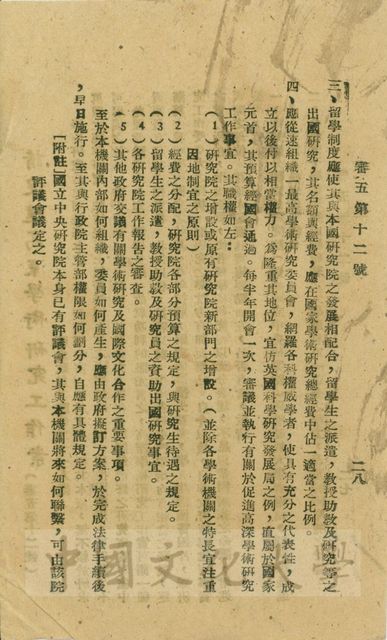 審五第十二號
二八
三、留學制度應使其與本國研究院之發展相配合，留學生之派遣，教授助教及研究等之
出國研究，其名額與經費，應在國家學術研究總經費中佔一適當之比例。
四、應從速組織一最高學術研究委員會，網羅各科權威學者，使具有充分之代表性，成
立以後付以相當權力。為隆重其地位，宜仿英國科學研究發展局之例，直屬於國家
元首，其預算經國會通過。每半年開會一次，審議並執行有關於促進高深學術研究
工作事宜。其職權如左：
（1）研究院之增設或原有研究院新部門之增設。（並除各學術機關之特長宜注重
因地制宜之原則）
（2）經費之分配，研究院各部分預算之規定，與研究生待遇之規定。
（3）留學生之派遣，教授助教及研究員之資助出國研究事宜。
（4）各研究院工作報告之審查。
（5）其他政府交議有關學術研究及國際文化合作之重要事項。
至於本機關內部如何組織，委員如何產生，應由政府擬訂方案，於完成法律手續後
，早日施行。至其與行政院主管部權限如何劃分，自應有具體規定。
［附註］國立中央研究院本身已有評議會，其與本機關將來如何聯繫，可由該院
評議會議定之。
中國文化大學